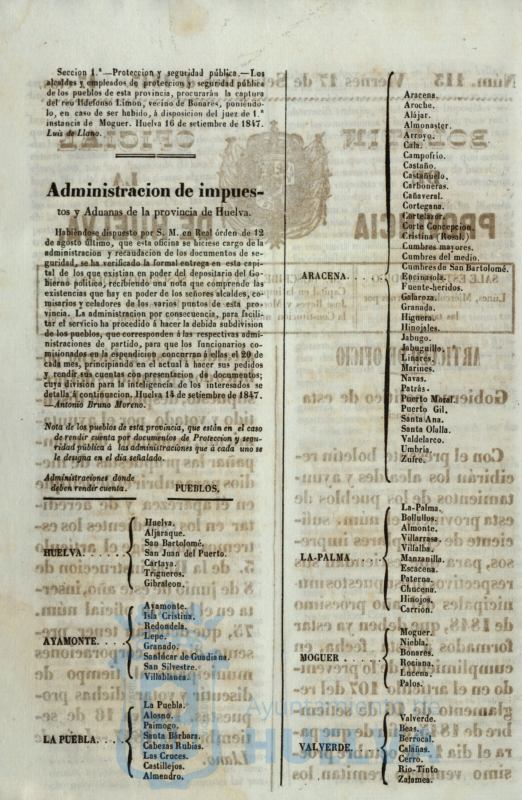 Seccion 1.ª—Proteccion y seguridad pública.—Los
alcaldes y empleados de proteccion y seguridad pública
de los pueblos de esta provincia, procurarán la captura
del reo Ildefonso Limon, vecino de Bonares, poniéndo-
lo, en caso de ser habido, á disposicion del juez de 1.ª
instancia de Moguer. Huelva 16 de setiembre de 1847.
Luis de Llano.
Administracion de impues-
tos y Aduanas de la provincia de Huelva.
Habiéndose dispuesto por S. M. en Real órden de 12
de agosto último, que esta oficina se hiciese cargo de la
administracion y recaudacion de los documentos de se-
guridad, se ha verificado la formal entrega en esta capi-
tal de los que existian en poder del depositario del Go-
bierno político, recibiendo una nota que comprende las
existencias que hay en poder de los señores alcaldes, co-
misarios y celadores de los varios puntos de esta pro-
vincia. La administracion por consecuencia, para facili-
tar el servicio ha procedido á hacer la debida subdivision
de los pueblos, que corresponden á las respectivas admi-
nistraciones de partido, para que los funcionarios co-
misionados en la espendicion concurran á ellas el 20 de
cada mes, principiando en el actual á hacer sus pedidos
y rendir sus cuentas con presentacion de documentos;
cuya division para la inteligencia de los interesados se
detalla á continuacion. Huelva 14 de setiembre de 1847.
—Antonio Bruno Moreno.
Nota de los pueblos de esta provincia, que están en el caso
de rendir cuenta por documentos de Proteccion y segu-
ridad pública á las administraciones que á cada uno se
le designa en el dia señalado.
Administraciones donde
deben rendir cuenta. PUEBLOS.
HUELVA. . . . .
Huelva.
Aljaraque.
San Bartolomé.
San Juan del Puerto.
Cartaya.
Trigueros.
Gibraleon.
AYAMONTE. . . .
Ayamonte.
Isla Cristina.
Redondela.
Lepe.
Granado.
Sanlúcar de Guadiana.
San Silvestre.
Villablanca.
LA PUEBLA. . . .
La Puebla.
Alosno.
Paimogo.
Santa Bárbara.
Cabezas Rubias.
Las Cruces.
Castillejos.
Almendro.
ARACENA. . . .
Aracena.
Aroche.
Alájar.
Almonaster.
Arroyo.
Cala.
Campofrio.
Castaño.
Castañuelo.
Carboneras.
Cañaveral.
Cortegana.
Cortelazor.
Corte Concepcion.
Cristina (Rosal.)
Cumbres mayores.
Cumbres del medio.
Cumbres de San Bartolomé.
Encinasola.
Fuente-heridos.
Galaroza.
Granada.
Higuera.
Hinojales.
Jabugo.
Jabuguillo.
Linares.
Marines.
Navas.
Patrás.
Puerto Moral.
Puerto Gil.
Santa Ana.
Santa Olalla.
Valdelarco.
Umbria.
Zufre.
LA-PALMA. . . .
La-Palma.
Bollullos.
Almonte.
Villarrasa.
Villalba.
Manzanilla.
Escacena.
Paterna.
Chucena.
Hinojos.
Carrion.
MOGUER . . . . .
Moguer.
Niebla.
Bonares.
Rociana.
Lucena.
Palos.
VALVERDE. . . .
Valverde.
Beas.
Berrocal.
Calañas.
Cerro.
Rio-Tinto
Zalamea.
Ayuntamiento de